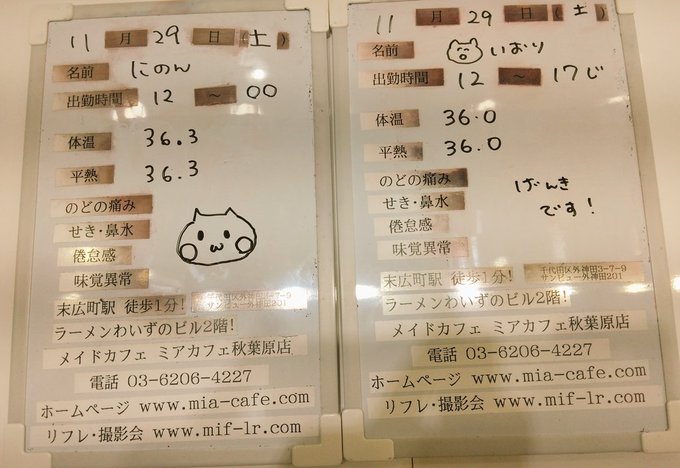 11月29日(土)
名前 にのん
出勤時間 12 ~ 00
体温 36.3
平熱 36.3
のどの痛み
せき・鼻水
倦怠感
味覚異常
末広町駅 徒歩1分! 千代田区外神田3-7-9
サンビュー外神田201
ラーメンわいずのビル2階!
メイドカフェ ミアカフェ秋葉原店
電話 03-6206-4227
ホームページ www.mia-cafe.com
リフレ・撮影会 www.mif-lr.com
11月29日(土)
名前 いおり
出勤時間 12 ~ 17じ
体温 36.0
平熱 36.0
のどの痛み
せき・鼻水
倦怠感
味覚異常
げんき
です!
末広町駅 徒歩1分! 千代田区外神田3-7-9
サンビュー外神田201
ラーメンわいずのビル2階!
メイドカフェ ミアカフェ秋葉原店
電話 03-6206-4227
ホームページ www.mia-cafe.com
リフレ・撮影会 www.mif-lr.com